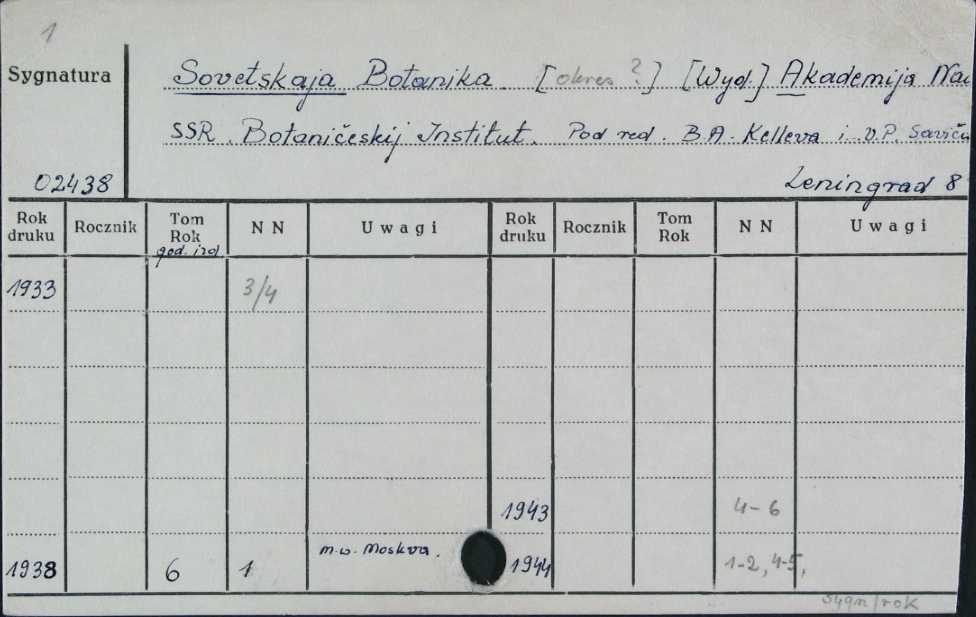 1
Sygnatura
Sovetskaja Botanika. [okres ?] [Wyd.] Akademija Na
SSR. Botaničeskij Institut. Pod red. B.A. Kelleva i V.P. Saviču
02438
Leningrad 8
Rok druku Rocznik Tom Rok N N Uwagi Rok druku Rocznik Tom Rok N N Uwagi
god. izd.
1933 3/4
1943 4-6
1938 6 1 m.w. Moskva. 1944 1-2, 4-5,
sygn/rok